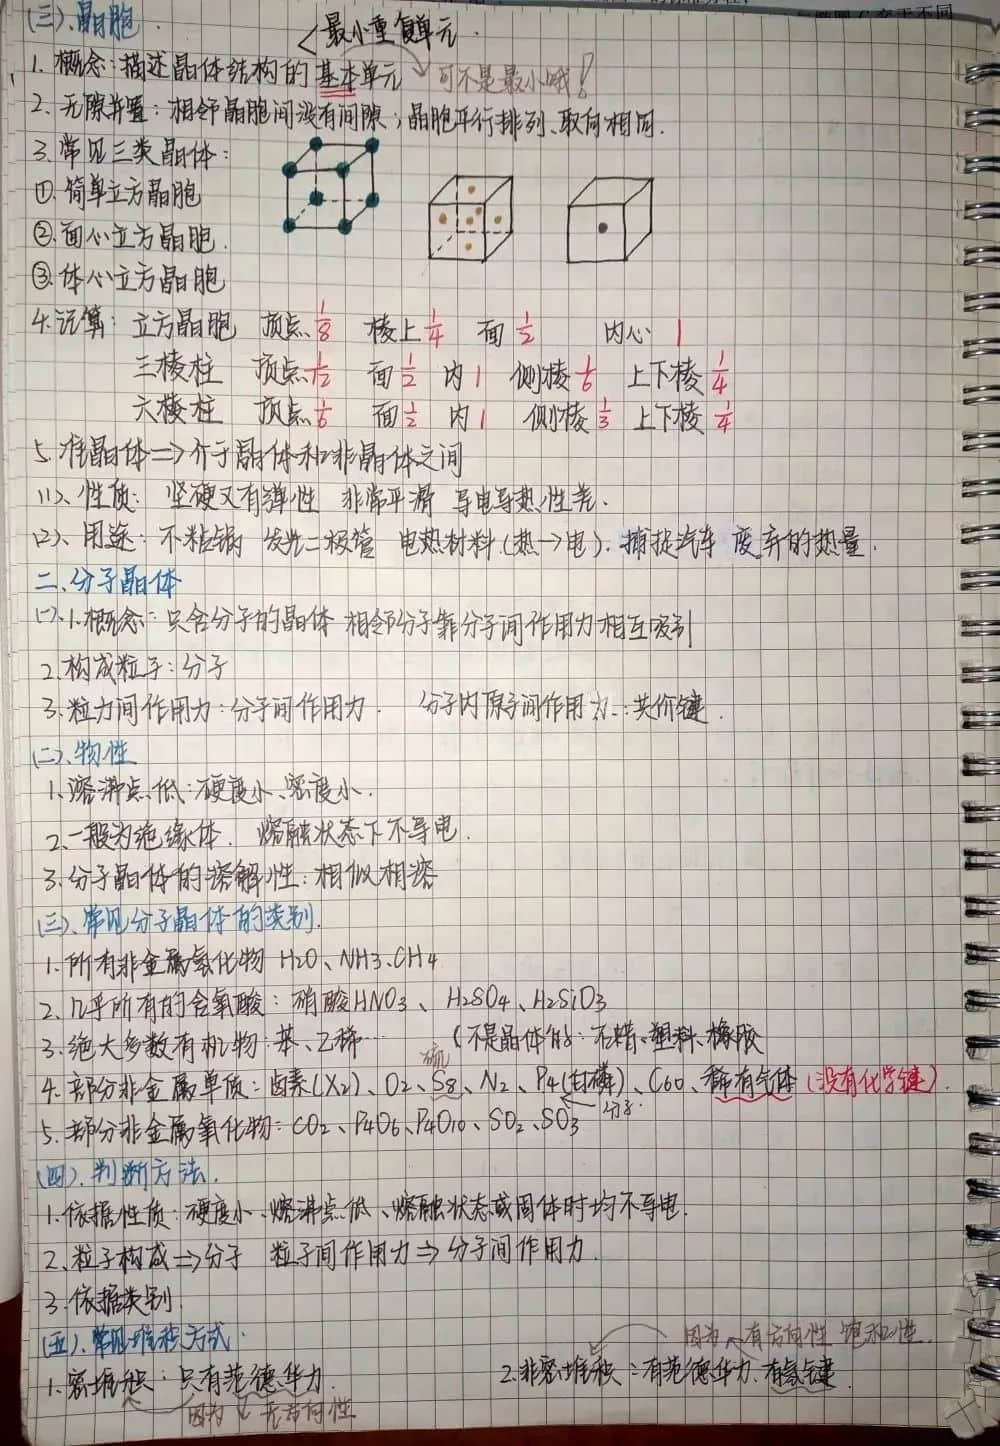 (三)、晶胞.
<最小重复单元.
1. 概念:描述晶体结构的基本单元 可不是最小哦!
2. 无隙并置:相邻晶胞间没有间隙;晶胞平行排列、取向相同.
3. 常见三类晶体:
①. 简单立方晶胞
②. 面心立方晶胞.
③. 体心立方晶胞
4. 计算: 立方晶胞 顶点 1/8 棱上 1/4 面 1/2 内心 1
三棱柱 顶点 1/12 面 1/2 内 1 侧棱 1/6 上下棱 1/4
六棱柱 顶点 1/6 面 1/2 内 1 侧棱 1/3 上下棱 1/4
5. 准晶体⇒介于晶体和非晶体之间
(1)、性质: 坚硬又有弹性 非常平滑 导电导热性差.
(2)、用途: 不粘锅 发光二极管 电热材料(热→电). 捕捉汽车 废弃的热量.
二、分子晶体
(一).1.概念:只含分子的晶体 相邻分子靠分子间作用力相互吸引
2.构成粒子:分子
3.粒力间作用力:分子间作用力. 分子内原子间作用力:共价键.
(二)、物性
1.溶沸点低:硬度小、密度小.
2.一般为绝缘体. 熔融状态下不导电.
3.分子晶体的溶解性:相似相溶
(三)、常见分子晶体的类别.
1.所有非金属氢化物 H2O、NH3、CH4
2.几乎所有的含氧酸:硝酸HNO3、H2SO4、H2SiO3
3.绝大多数有机物:苯、乙稀… (不是晶体的:石蜡、塑料、橡胶
硫
4.部分非金属单质:卤素(X2)、O2、S8、N2、P4(白磷)、C60、稀有气体(没有化学键).
←分子.
5.部分非金属氧化物:CO2、P4O6、P4O10、SO2、SO3
(四)、判断方法.
1.依据性质:硬度小、熔沸点低、熔融状态或固体时均不导电.
2.粒子构成⇒分子 粒子间作用力⇒分子间作用力.
3.依据类别.
(五)、常见堆积方式. 因为 有方向性 饱和性.
1.密堆积:只有范德华力. 2.非密堆积:有范德华力、有氢键.
因为 无方向性